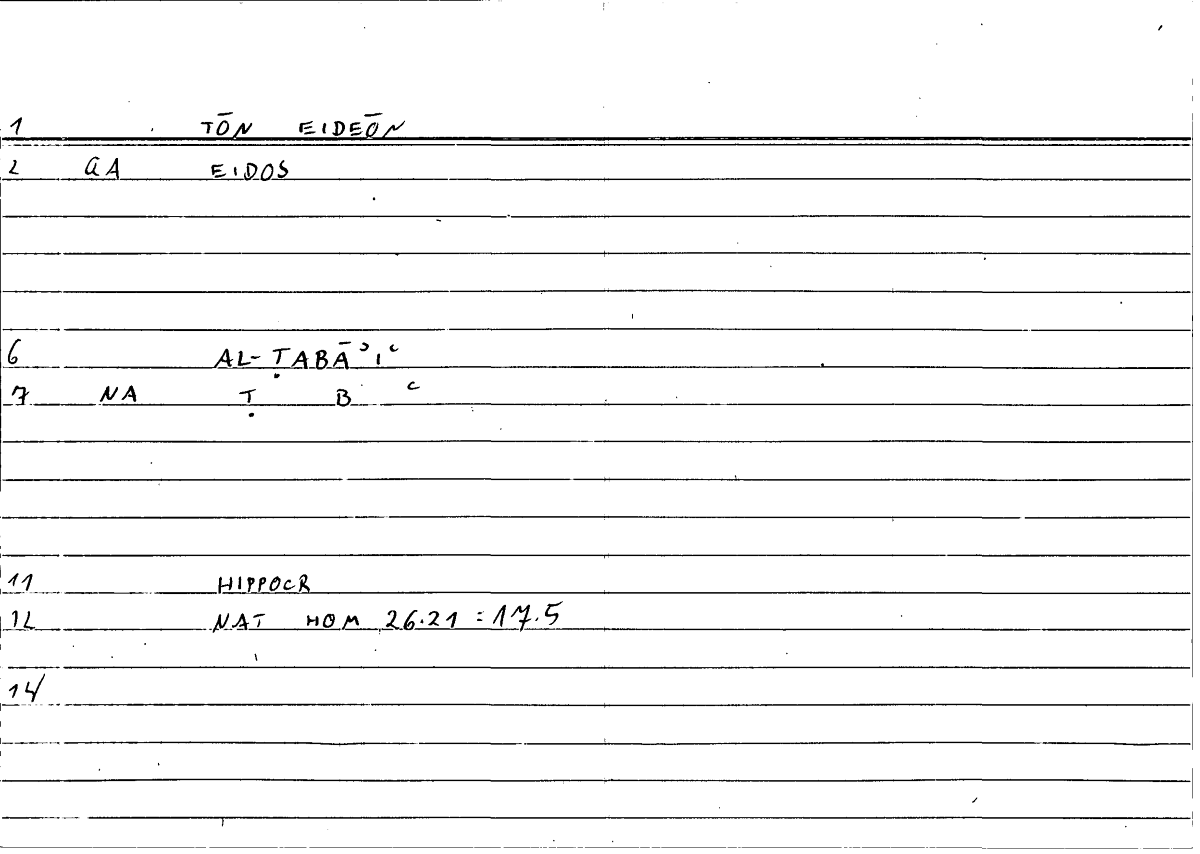 1 TŌN EIDEŌN
2 GA EIDOS
6 AL-ṬABĀʾIʿ
7 NA Ṭ B ʿ
11 HIPPOCR
12 NAT HOM 26.21 = 17.5
14